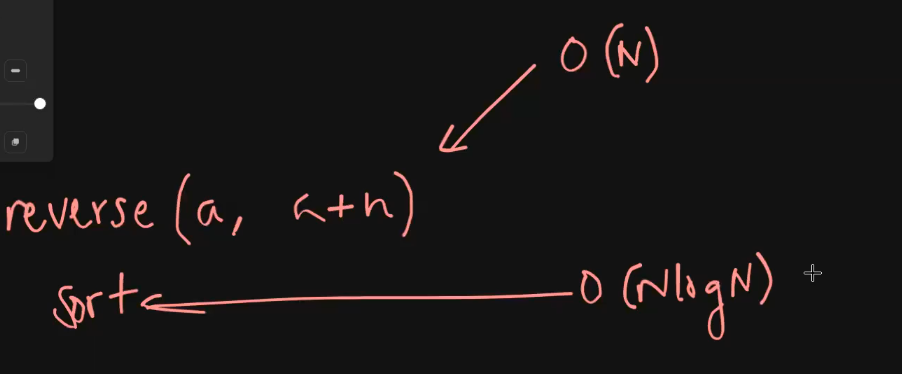 O (N)
reverse (a, a+n)
sort
O (NlogN)